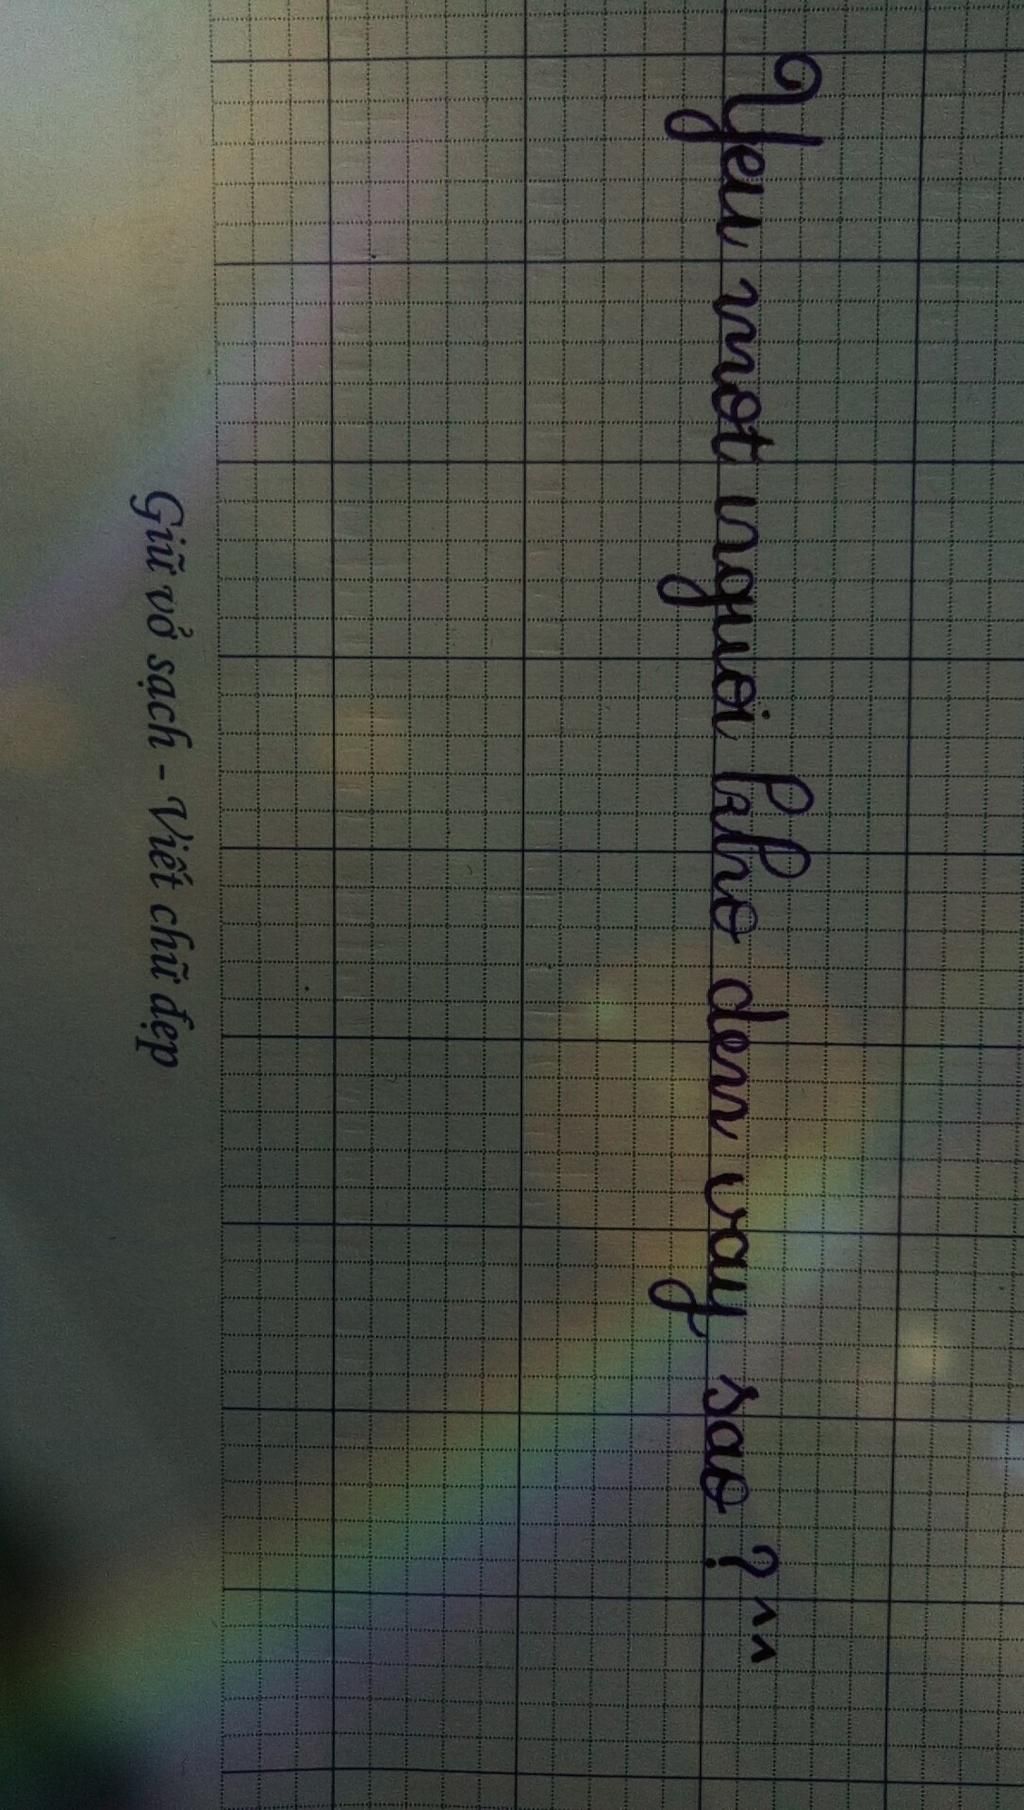 Yeu mot nguoi kho den vay sao ? ^^
Giữ vở sạch - Viết chữ đẹp